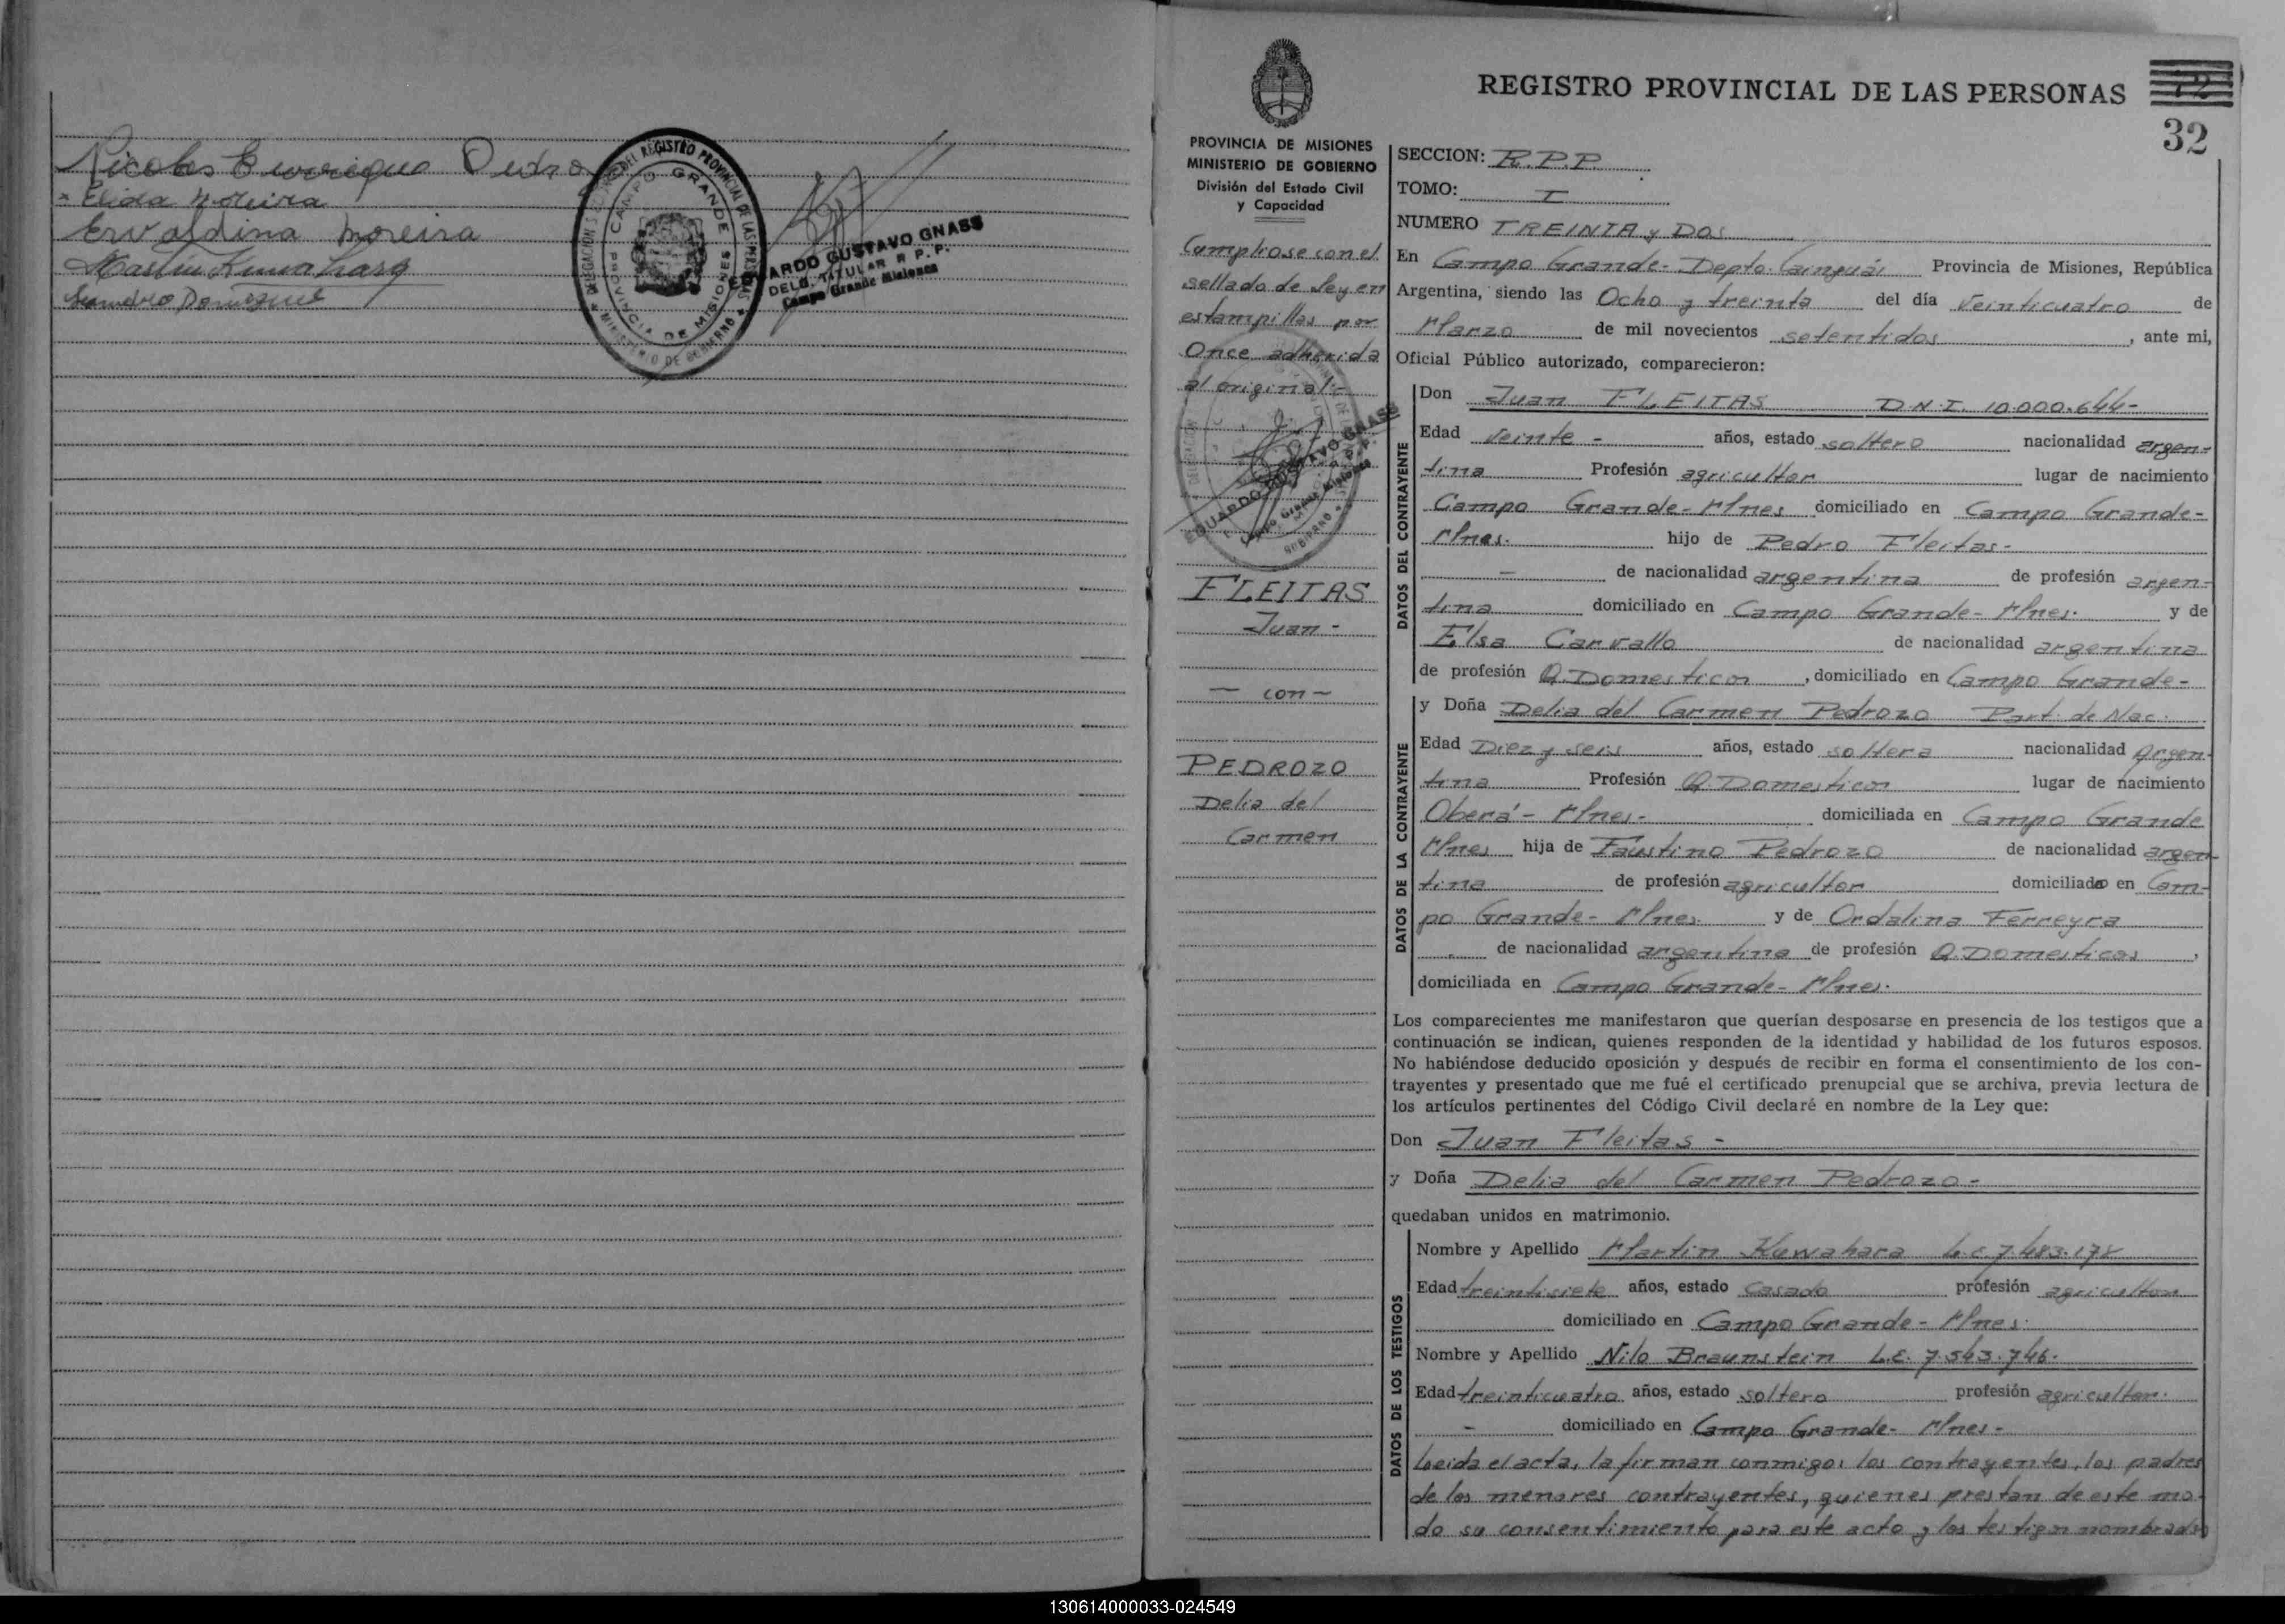 Nicolas Enrique Pedro
x Elida Moreira
Ervaldina Moreira
Martin Kuwahara
Leandro Dominguez
DELEGACION SECCIONAL DEL REGISTRO PROVINCIAL DE LAS PERSONAS
CAMPO GRANDE
PROVINCIA DE MISIONES
MINISTERIO DE GOBIERNO
EDUARDO GUSTAVO GNASS
DELG. TITULAR R. P. P.
Campo Grande Misiones
REGISTRO PROVINCIAL DE LAS PERSONAS
32
PROVINCIA DE MISIONES
MINISTERIO DE GOBIERNO
División del Estado Civil
y Capacidad
Cumpliose con el
sellado de ley en
estampillas por
Once adherida
al original.-
EDUARDO GUSTAVO GNASS
Campo Grande Misiones
FLEITAS
Juan -
- con -
PEDROZO
Delia del
Carmen
SECCION: R.P.P.
TOMO: I
NUMERO TREINTA y DOS
En Campo Grande- Depto. Cainguás Provincia de Misiones, República
Argentina, siendo las Ocho y treinta del día veinticuatro de
Marzo de mil novecientos setentidos, ante mi,
Oficial Público autorizado, comparecieron:
DATOS DEL CONTRAYENTE
Don Juan FLEITAS D.N.I. 10.000.644-
Edad veinte - años, estado soltero nacionalidad argen-
tina Profesión agricultor lugar de nacimiento
Campo Grande- Mnes domiciliado en Campo Grande-
Mnes. hijo de Pedro Fleitas-
- de nacionalidad argentina de profesión argen-
tina domiciliado en Campo Grande- Mnes. y de
Elsa Carvallo de nacionalidad argentina
de profesión Q.Domesticos, domiciliado en Campo Grande-
DATOS DE LA CONTRAYENTE
y Doña Delia del Carmen Pedrozo Part. de Nac.
Edad Diez y seis años, estado soltera nacionalidad argen-
tina Profesión Q.Domesticos lugar de nacimiento
Oberá- Mnes- domiciliada en Campo Grande
Mnes hija de Faustino Pedrozo de nacionalidad argen-
tina de profesión agricultor domiciliado en Cam-
po Grande- Mnes. y de Ordalina Ferreyra
de nacionalidad argentina de profesión Q.Domesticos,
domiciliada en Campo Grande- Mnes.
Los comparecientes me manifestaron que querían desposarse en presencia de los testigos que a
continuación se indican, quienes responden de la identidad y habilidad de los futuros esposos.
No habiéndose deducido oposición y después de recibir en forma el consentimiento de los con-
trayentes y presentado que me fué el certificado prenupcial que se archiva, previa lectura de
los artículos pertinentes del Código Civil declaré en nombre de la Ley que:
Don Juan Fleitas -
y Doña Delia del Carmen Pedrozo-
quedaban unidos en matrimonio.
DATOS DE LOS TESTIGOS
Nombre y Apellido Martin Kuwahara L.E. 7.483.178
Edad treintisiete años, estado casado profesión agricultor
domiciliado en Campo Grande- Mnes.
Nombre y Apellido Nilo Braunstein L.E. 7.543.746.
Edad treinticuatro años, estado soltero profesión agricultor.
- domiciliado en Campo Grande- Mnes-
Leida el acta, la firman conmigo, los contrayentes, los padres
de los menores contrayentes, quienes prestan de este mo-
do su consentimiento para este acto y los testigos nombrados
130614000033-024549